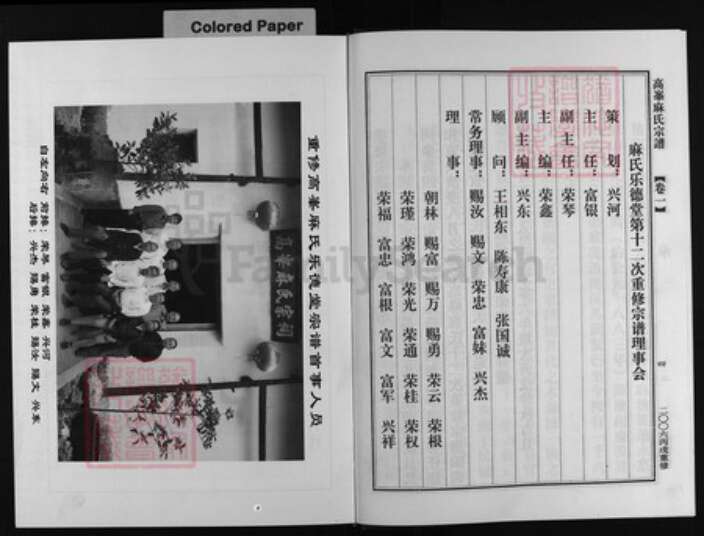 Colored Paper
高峯麻氏宗谱 【卷一】
四
二〇〇六丙戌重修
麻氏乐德堂第十二次重修宗谱理事会
策划：兴河
主任：富银
副主任：荣琴
主编：荣鑫
副主编：兴东
顾问：王相东 陈寿康 张国诚
常务理事：赐汝 赐文 荣忠 富妹 兴杰
理事：
朝林 赐富 赐万 赐勇 荣云 荣根
荣瑾 荣鸿 荣光 荣通 荣桂 荣权
荣福 富忠 富根 富文 富军 兴祥
重修高峯麻氏乐德堂宗谱首事人员
高峯麻氏宗祠
自左向右 前排：荣琴 富银 荣鑫 兴河
后排：兴杰 赐勇 荣桂 赐汝 赐文 兴东
FamilySearch